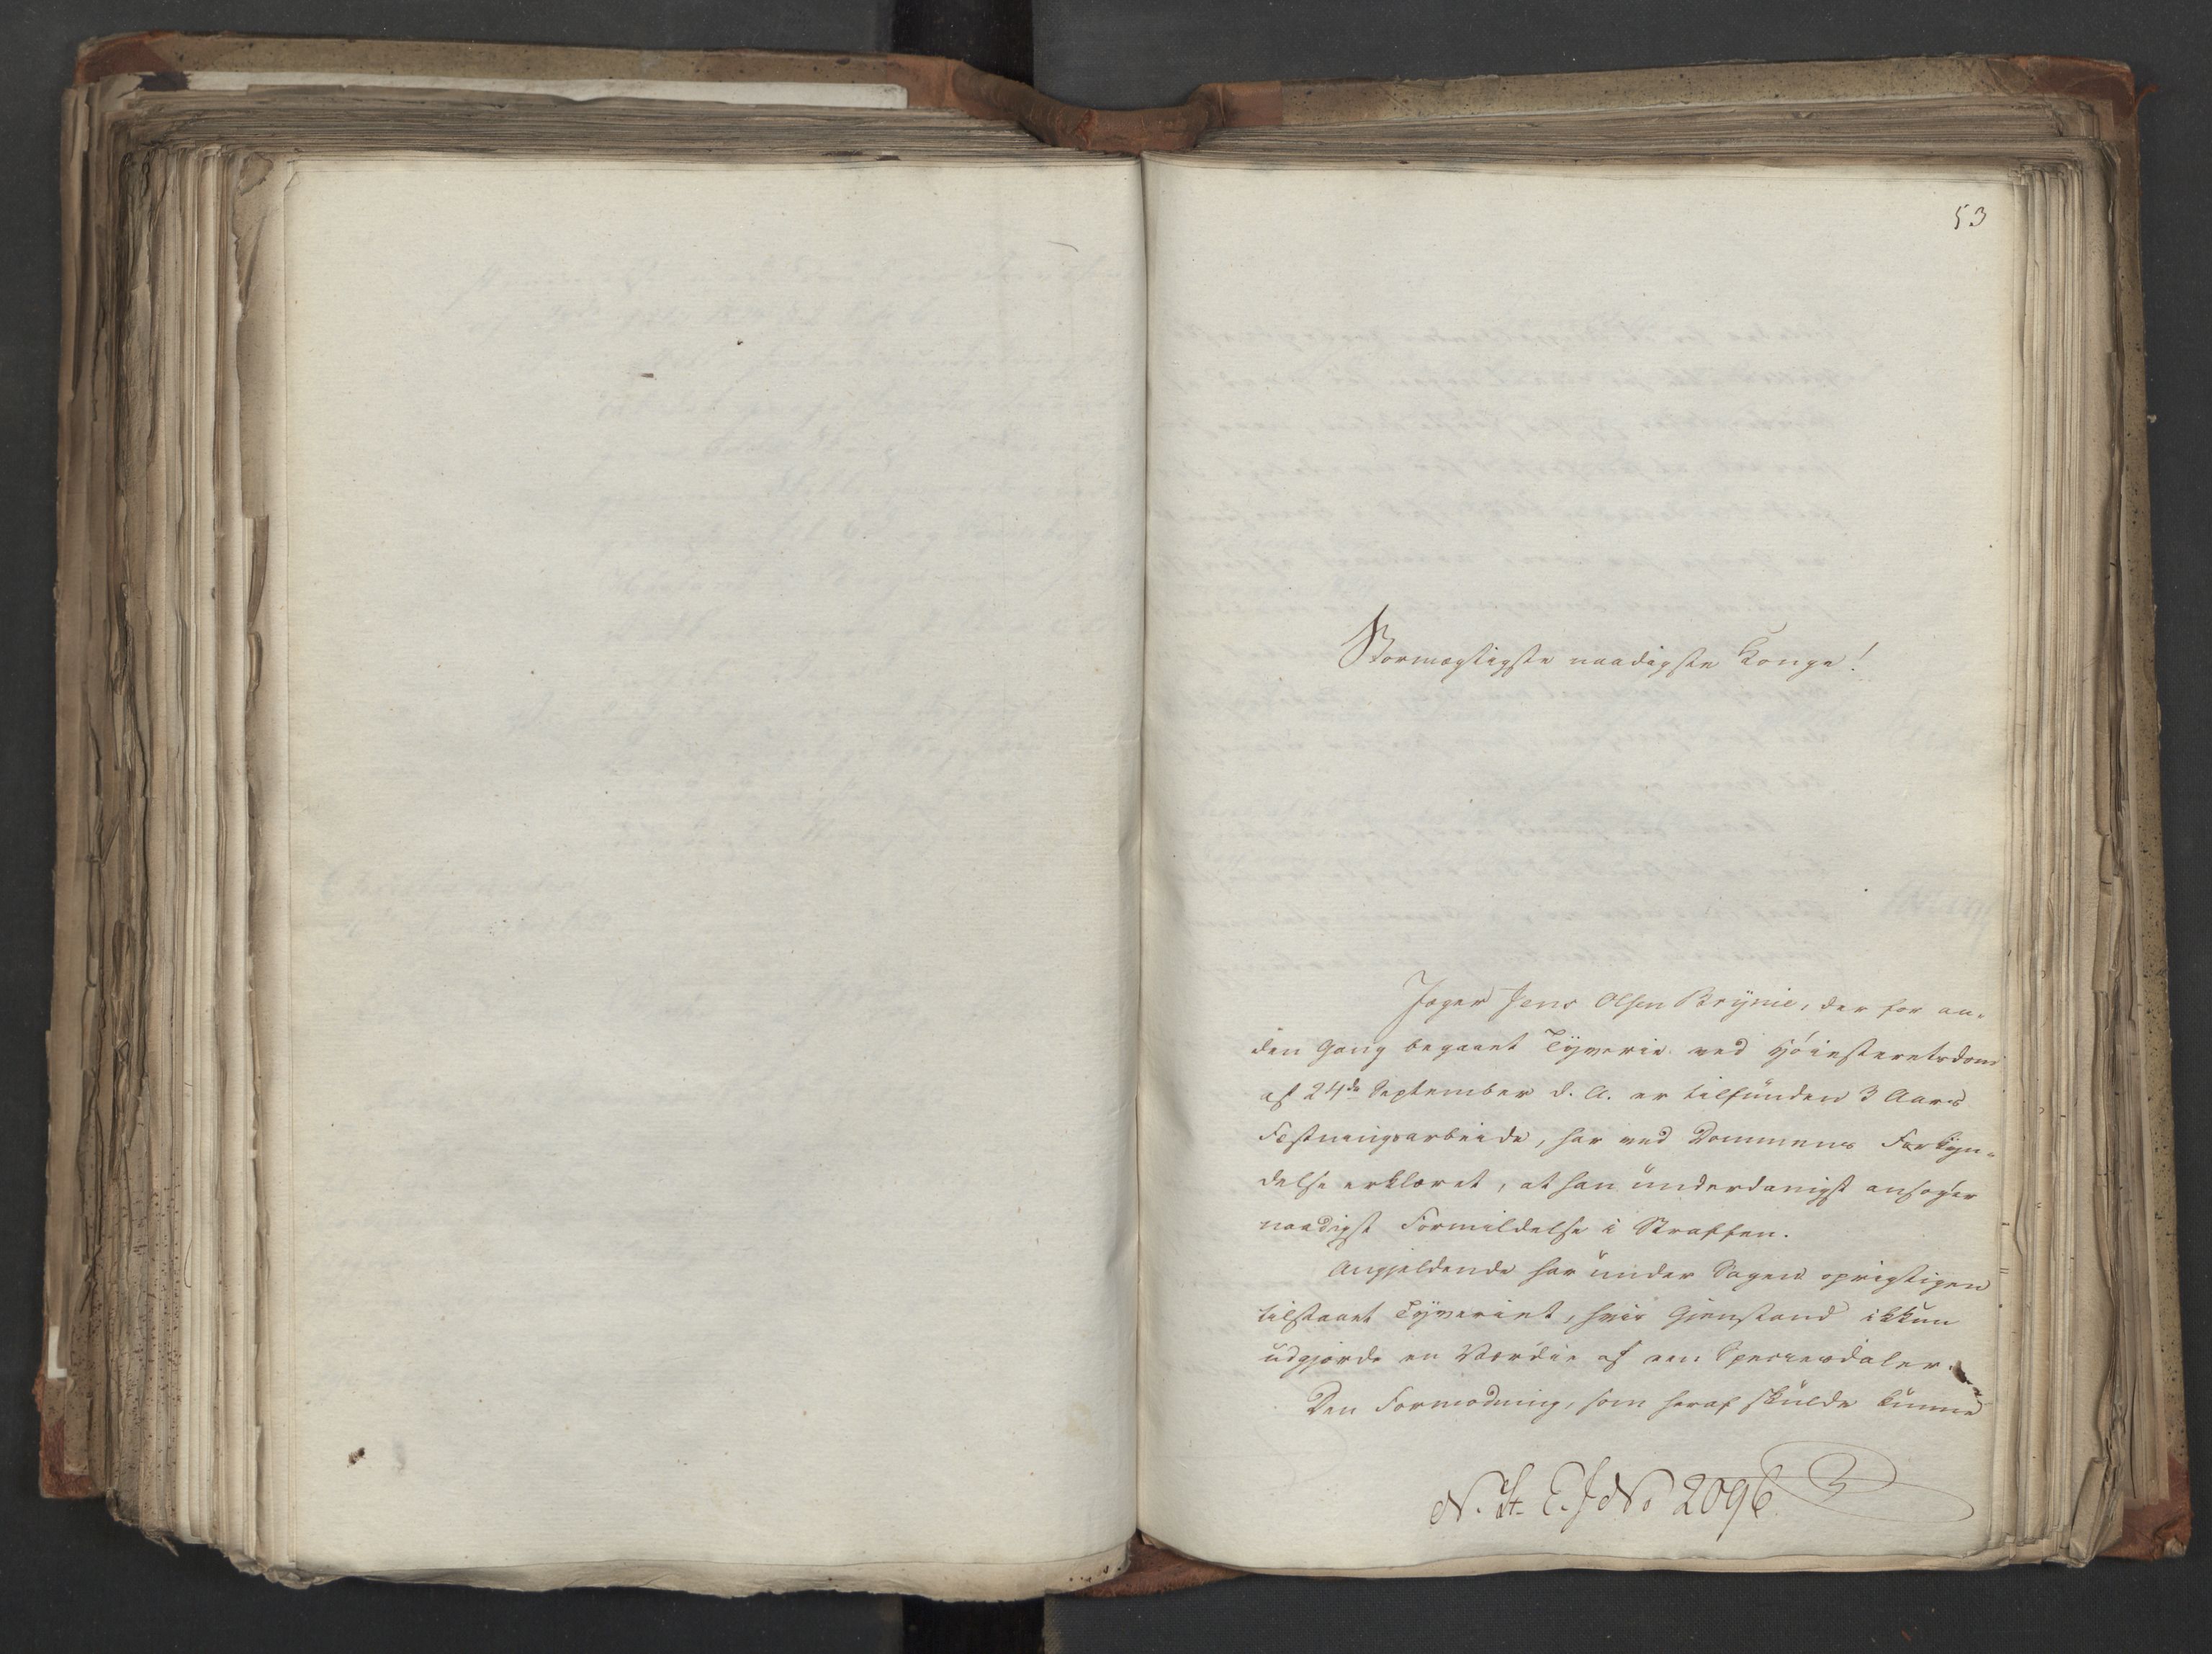 53
Stormægtigste naadigste Konge!
Jæger Jens Olsen Brynie, der for an-
den Gang begaaet Tyverie ved Höiesteretsdom
af 24de September d. A. er tilfunden 3 Aars
Fæstningsarbeide, har ved Dommens Forkyn-
delse erklæret, at han underdanigst ansøger
naadigst Formildelse i Straffen.
Angjeldende har under Sagen oprigtigen
tilstaaet Tyveriet, hvis Gjenstand ikkun
udgjorde en Værdie af een Speciesdaler.
Den Formodning, som heraf skulde kunne
N. St. E. J No 2096